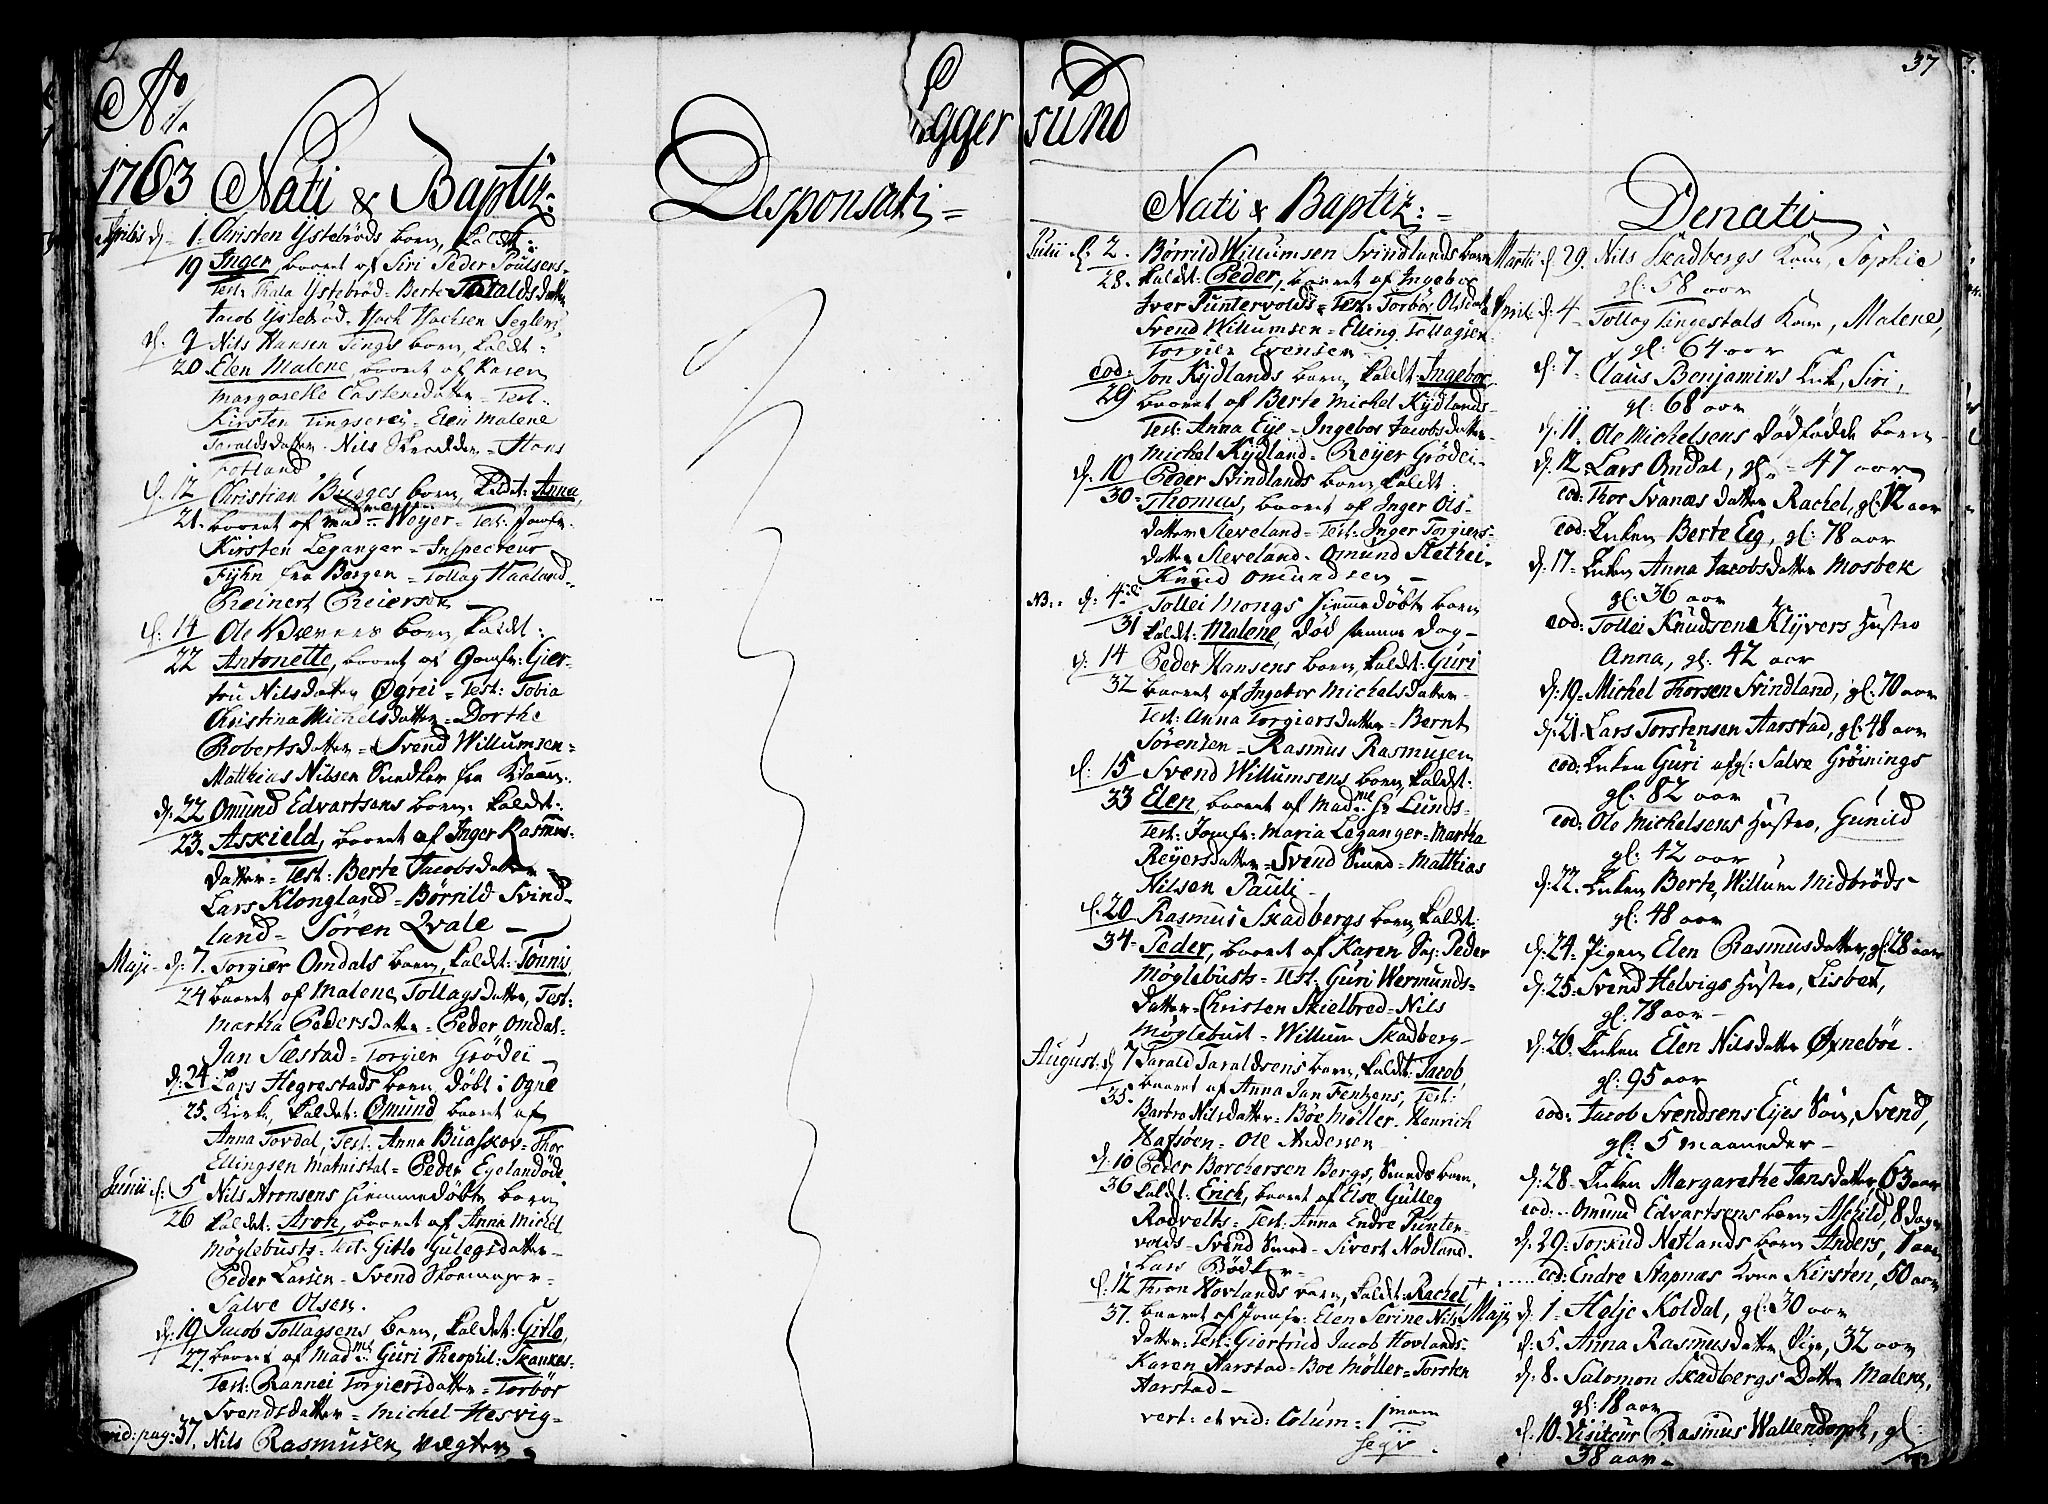 Ao
1763
Egger sund
37
Nati & Baptiz:
Desponsati =
Nati & Baptiz: =
Denati
Aprilis d. 1. Christen Ystebrøds barn, kaldt:
19 Inger, baaret af Siri Peder Poulsens-
Test: Thala Ystebrød = Berte Taraldsdatter
Jacob Ystebrød - Hack Hachsen Seglem
d. 9 Nils Hansen Tings barn, kaldt =
20 Elen Malene, baaret af Karen
Margarethe Castensdatter = Test:
Kirsten Tingserej = Elen Malene
Taraldsdatter - Nils Skrædder = Hans
Totland
d. 12 Christian Bugges barn, kaldet: Anna,
21. baaret af mad:me Weyer = Test: Jomfr.
Kirsten Leganger = Inspecteur
Fyhn fra Bergen = Tollag Haaland =
Reinert Reiersen
d: 14 Ole barn, kaldt:
22 Antonette, baaret af Jomfr: Gier-
tru Nilsdatter Øgrei = Test: Tobia
Christina Michelsdatter = Dorthe
Robertsdatter = Svend Willumsen =
Matthias Nilsen fra
d: 22 Omund Edvartsens barn. kaldt:
23. Askield, baaret af Inger Rasmus-
datter = Test: Berte Jacobsdatter =
Lars Klongland = Børrild Svind-
land = Sören Qvale -
Maji - d: 7. Torgier Omdals barn, kaldet: Tönnis
24 baaret af Malene Tollagsdatter, Test:
Martha Pedersdatter = Peder Omdal =
Jan Sæstad = Torgier Grödei -
d: 24 Lars Hegrestads barn, döbt i Ogne
25. Kirke, kaldet: Omund baaret af
Anna Tordal, Test: Anna Buaskov = Thor
Ellingsen Matnistal = Peder Eyelandöde
Junii d: 5 Nils Aronsens hiemmedöbte barn
26 kaldet: Aron, baaret af Anna Michel
Möglebusts = Test: Gitlo Gulegsdatter =
Peder Larsen = Svend Skoemager =
Salve Olsen.
d: 19 Jacob Tollagsens barn, kaldet: Gitlo,
27. baaret af Mad:me Guri Theophil: Skankes =
Test: Rannei Torgiersdatter = Torbör
Svendsdatter = Michel Hesvig =
vid: pag: 37. Nils Rasmusen Vægter
Julii d. 2. Börrild Willumsen Svindlands barn
28. kaldet: Peder, baaret af Ingebor
Iver Puntervolds = Test: Torbör Olsdatter
Svend Willumsen = Elling Tollagsen
Torgier Evensen
eod: Jon Kydlands barn, kaldt: Ingebor,
29 baaret af Berte Michel Kydlands =
Test: Anna Eye = Ingebor Jacobsdatter =
Michel Kydland = Reyer Grödei =
d: 10 Peder Svindlands barn kaldt:
30 - Thomas, baaret af Inger Ols-
datter Sleveland = Test: Inger Torgiers-
datter Sleveland - Omund Slethei -
Knud Omundsen -
NB: d: 4. Tollei Mongs hiemmedøbte barn
31 kaldt: Malene, død samme dag -
d: 14 Peder Hansens barn, kaldt: Guri
32 baaret af Ingebor Michelsdatter =
Test: Anna Torgiersdatter = Bernt
Sörensen = Rasmus Rasmusen
d: 15 Svend Willumsens barn kaldt:
33 Elen, baaret af Mad:me Lunds =
Test: Jomfr: Maria Leganger = Martha
Reyersdatter = Svend Smed = Matthias
Nilsen Pauli -
d: 20 Rasmus Skadbergs barn, kaldt:
34 - Peder, baaret af Karen Peder
Möglebusts = Test: Guri Wermunds-
datter = Christen Skielbred = Nils
Möglebust = Willum Skadberg -
August: d 7 Tarald Taraldsens barn, kaldt: Jacob,
35. baaret af Anna Jan Fentzens, Test:
Barbro Nilsdatter = Böe Möller = Henrich
Hafsöen = Ole Andersen -
d: 10 Peder Borchersen Bergs, Smeds barn,
36 kaldt: Erich, baaret af Else Gulleg
Rodvelts = Test: Anna Endre Punter-
volds = Svend Smed = Sivert Nodland.
Lars Bödker -
d: 12 Thron Hovlands barn, kaldt: Rachel +
37. baaret af Jomfr: Elen Serine Nils-
datter. Test: Giertrud Jacob Hovlands =
Karen Aarstad = Boe Möller = Torsten
Aarstad -
vert: et vid: Colum: 1mam
seqv.
Martii d 29. Nils Skadbergs Kone, Sophie
gl: 58 aar
April: d: 4 - Tollag Tingestals Kone, Malene,
gl: 64 aar
d: 7 - Claus Benjamins Enke, Siri,
gl: 68 aar
d: 11. Ole Michelsens dødfødde barn
d: 12 - Lars Omdal, gl: = 47 aar
eod: Thor Svanæs datter Rachel, gl: 12 aar
eod: Enken Berte Eeg, gl: 78 aar
d: 17 - Enken Anna Jacobsdatter Mosbek
gl: 36 aar
eod: Tollei Knudsen Klyvers Hustro
Anna, gl: 42 aar
d: 19 - Michel Thorsen Svindland, gl: 70 aar
d: 21. Lars Torstensen Aarstad, gl: 48 aar
eod: Enken Guri afgl: Salve Gröinings
gl: 82 aar
eod: Ole Michelsens Hustro, Gunild
gl: 42 aar
d: 22. Enken Berte, Willum Midbröds -
gl: 48 aar
d: 24 - Pigen Elen Rasmusdatter, gl: 28 aar
d: 25 - Svend Helvigs Hustro, Lisbet,
gl: 78 aar -
d: 26 - Enken Elen Nilsdatter Øxneböe.
gl: 95 aar
eod: Jacob Svendsens Eyes Sön, Svend,
gl: 5 maaneder -
d: 28 - Enken Margarethe Jansdatter 63 aar
eod: - Omund Edvartsens barn Aschild, 8 dage
d: 29 - Torkild Netlands barn Anders, 1 aar,
eod: Endre Stapnæs Kone Kirsten, 50 aar
Maji d: 1 - Helje Koldal, gl: 30 aar
d: 5. Anna Rasmusdatter Pige, 32 aar
d: 8 - Salomon Skadbergs Datter Malene,
gl: 18 aar
d: 10 - Visiteur Rasmus Wallendorph, gl:
38 aar -